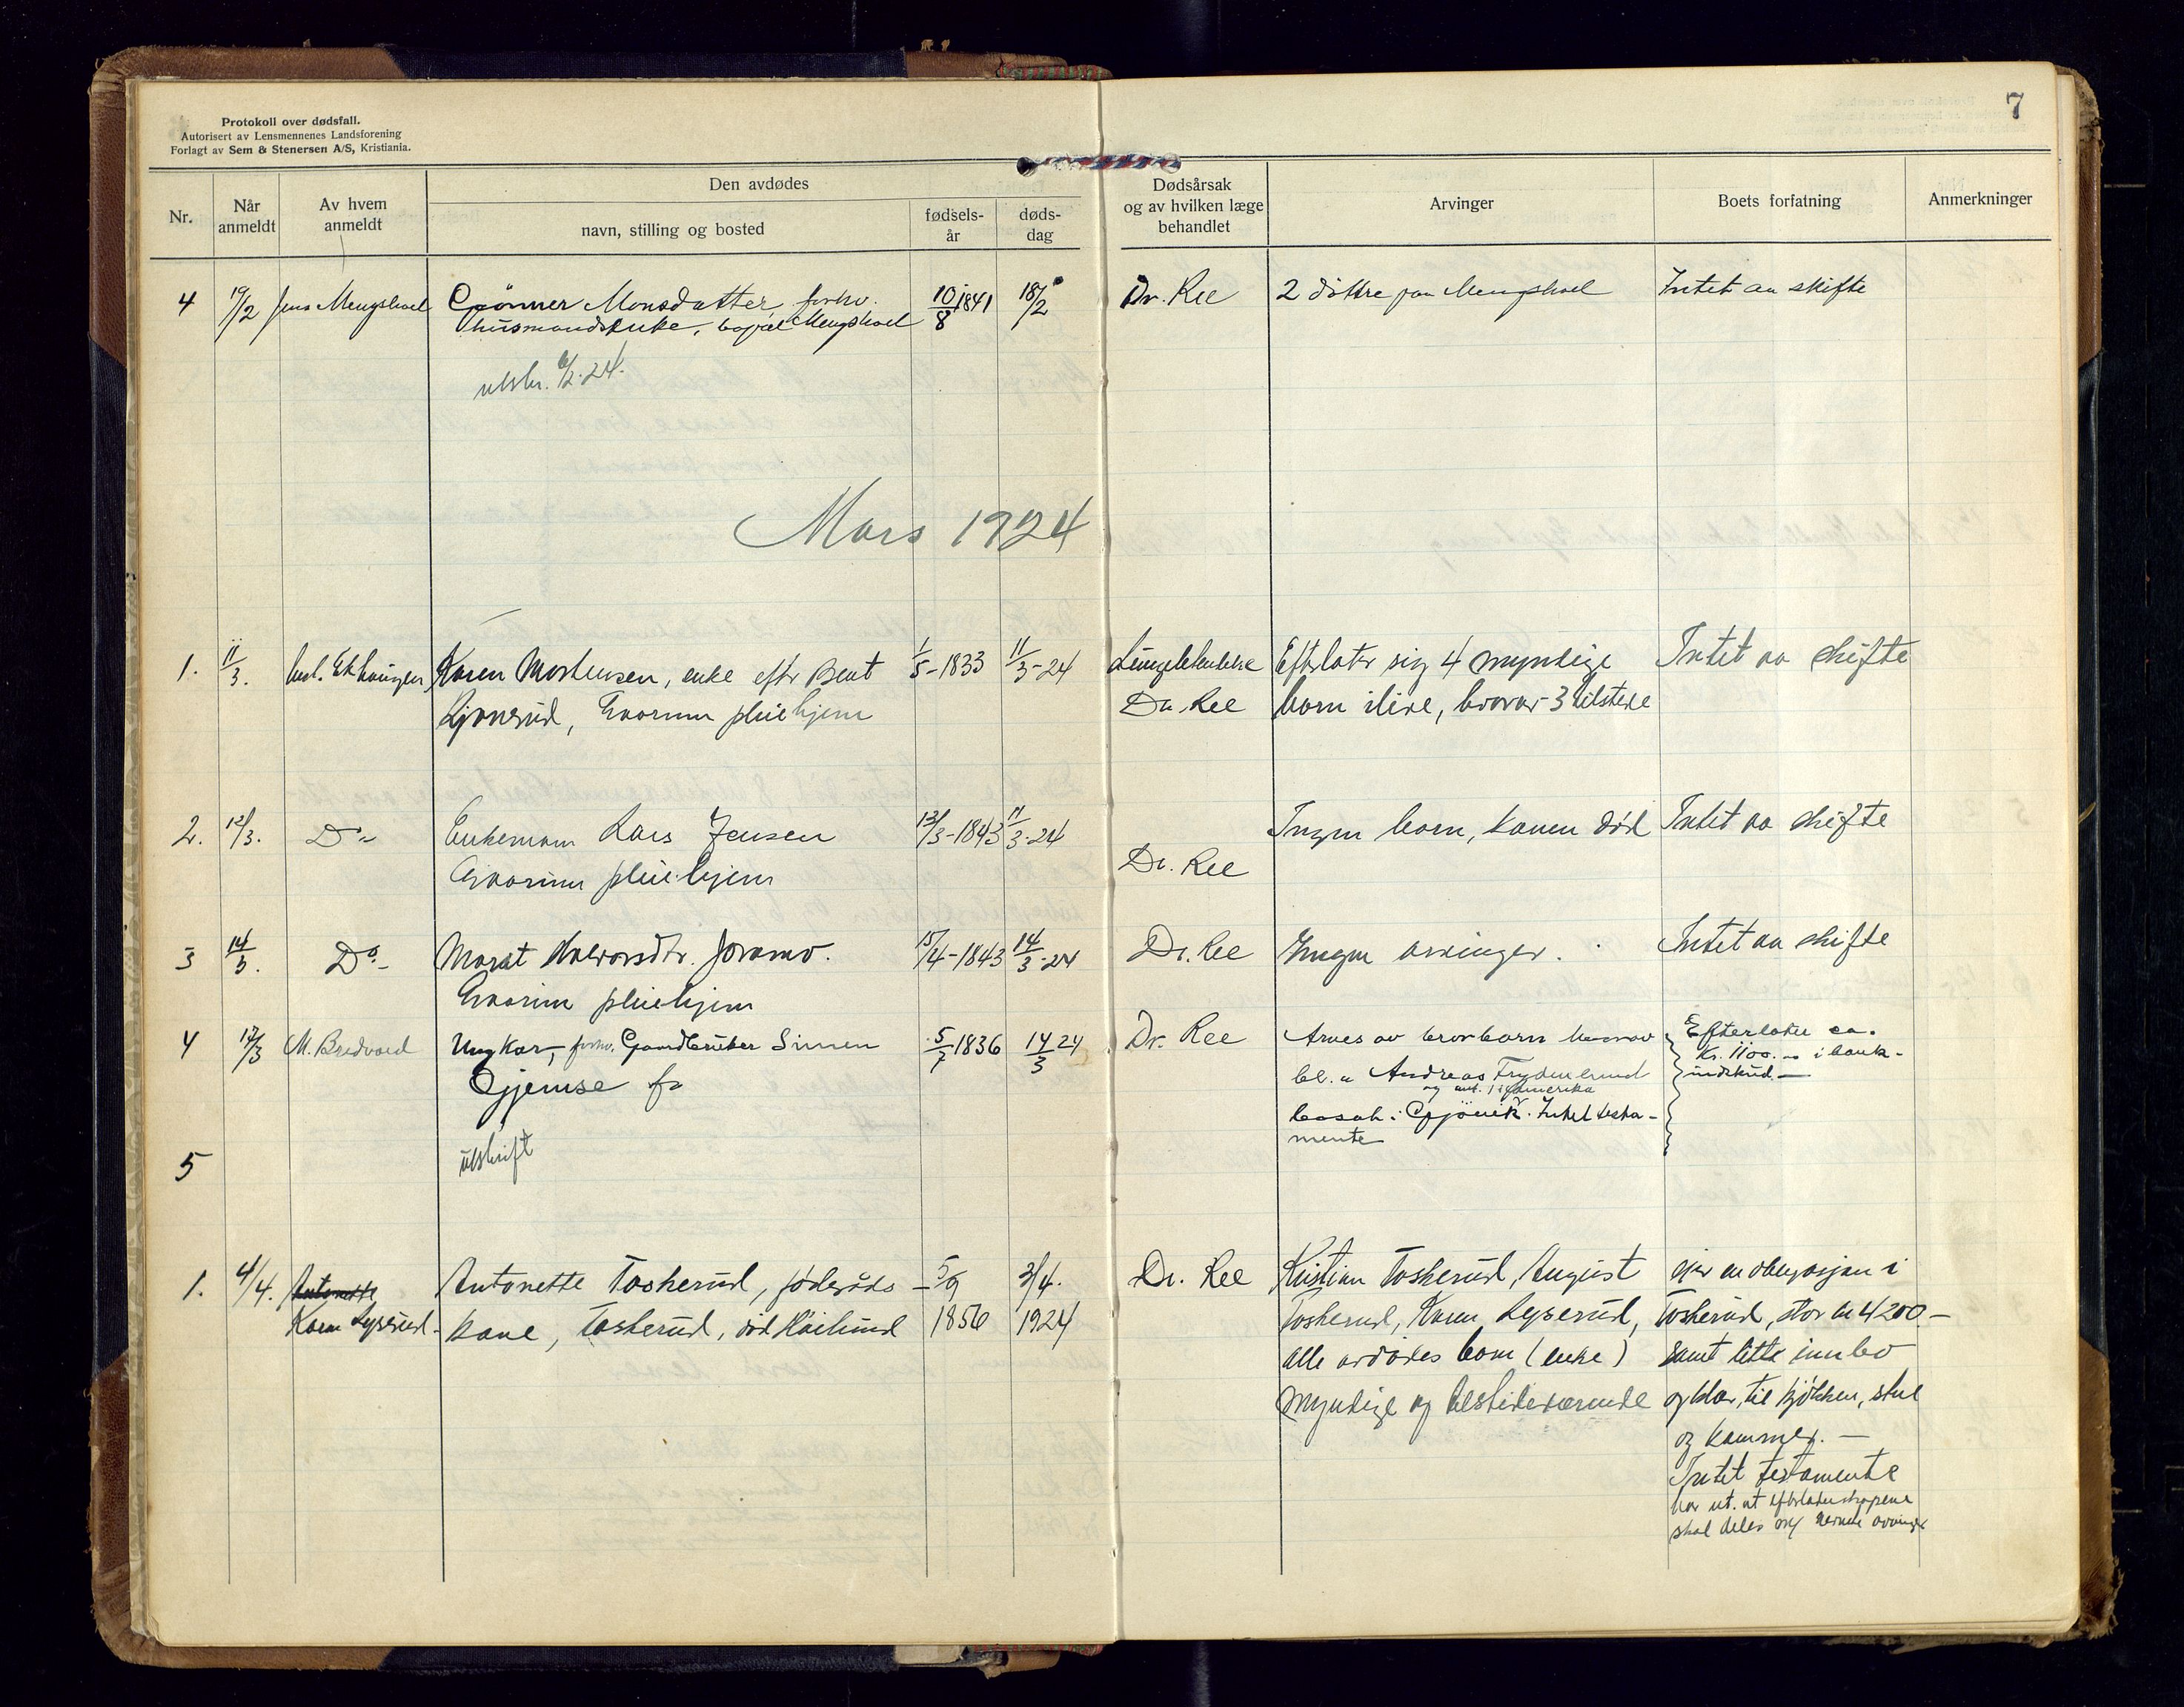 7
Protokoll over dødsfall.
Autorisert av Lensmennenes Landsforening
Forlagt av Sem & Stenersen A/S, Kristiania.
Nr.
Når anmeldt
Av hvem anmeldt
Den avdødes
navn, stilling og bosted
fødsels-år
døds-dag
Dødsårsak og av hvilken læge behandlet
Arvinger
Boets forfatning
Anmerkninger
4 19/2 Jens Mengshoel Monsdatter, forhv. 10/8 1841 18/2 Dr. Ree 2 døttre paa Mengshoel Intet aa skifte
husmandsenke, Mengshoel
utskr. 24.
Mars 1924
1. 11/3. Karen Mortensen, enke eftr Bent 1/5-1833 11/3-24 Lungebetendelse Efterlater sig 4 myndige Intet aa skifte
pleiehjem Dr. Ree barn ilive, hvorav 3 tilstede
2. 12/3. Do Enkemann Lars Jensen 12/3-1843 11/3-24 Ingen barn, konen död Intet aa skifte
pleiehjem Dr. Ree
3 14/3. Do Marit Halvorsdtr. Joramo. 15/4-1843 14/3-24 Dr. Ree Ingen arvinger. Intet aa skifte
pleiehjem
4 17/3 M. Bredvold Ungkar, forhv. Gaardbruker Simen 5/7-1836 14/3 24 Dr. Ree Arves av brorbarn hvorav Efterlater ca.
Gjemse fr bl. a Andreas Frydenlund Kr. 1100.- i bank-
og ant. 1 i Amerika indskud.-
bosat i Gjövik. Intet testa-
mente
utskrift
5
1. 4/4. Antonette Antonette Toskerud, föderåds- 5/9 3/4. Dr. Ree Kristian Toskerud, August eier en obligasjon i
Karen Lyserud. kone, Toskerud, 1856 1924 Toskerud, Karen Lyserud, Toskerud, stor kr 4200.-
alle avdödes barn (enke) samt litt innbo
myndige og tilstedeværende og klær, til kjökken, stue
og kammer.-
Intet testamente
har ut. at efterlatenskapene
skal deles nevnte arvinger